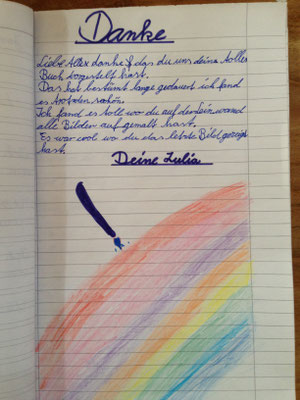 Danke
Liebe Alex danke das du uns deine tolles
Buch vorgestelt hast.
Das hat bestimt lange gedauert ich fand
es trotzden schön.
Ich fand es toll wo du auf der Leinwand
alle Bilder auf gemalt hast.
Es war cool wo du das letzte Bild gezeigt
hast.
Deine Julia